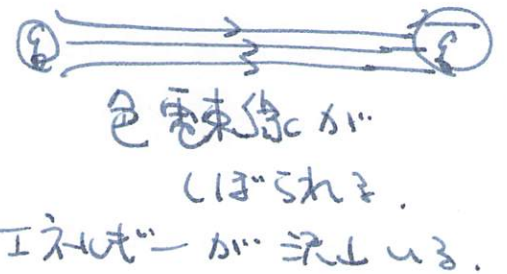 q
q̄
色電束線が
しぼられる.
エネルギーが沢山いる.